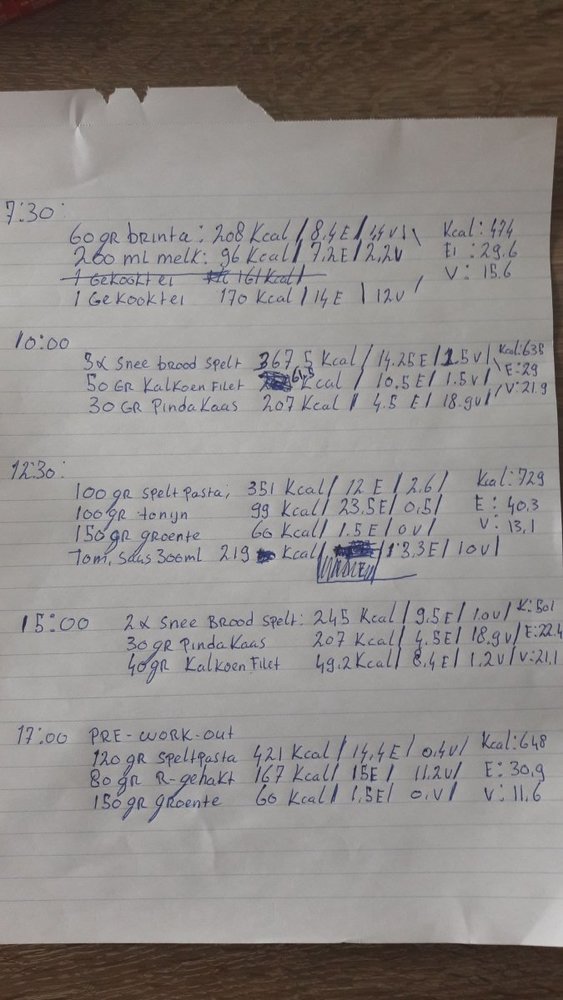 7:30:
60 gr brinta: 208 Kcal / 8.4 E / 1,4 v \ Kcal: 474
200 ml melk: 96 Kcal / 7.2 E / 2,2v E: 29.6
1 Gekooktei 161 Kcal / V: 15.6
1 Gekooktei 170 Kcal / 14 E / 12v /
10:00
3x Snee brood spelt 367,5 Kcal / 14.25 E / 1.5 v / Kcal: 635
50 GR Kalkoen Filet 61,5 Kcal / 10.5 E / 1.5 v / E: 29
30 GR Pindakaas 207 Kcal / 4.5 E / 18.9v / V: 21.9
12:30:
100 gr speltpasta; 351 Kcal / 12 E / 2.6 / Kcal: 729
100 gr tonyn 99 Kcal / 23.5 E / 0,5 / E: 40.3
150 gr groente 60 Kcal / 1.5 E / 0v / V: 13,1
Tom. saus 300ml 219 Kcal / 3.3 E / 10v /
15:00 2x Snee Brood spelt: 245 Kcal / 9.5 E / 1.0v / K: 501
30 gr Pindakaas 207 Kcal / 4.5 E / 18.9v / E: 22.4
40 gr Kalkoen Filet 49.2 Kcal / 8.4 E / 1.2v / V: 21,1
17:00 PRE-WORK-OUT
120 gr speltpasta 421 Kcal / 14,4 E / 0,4v / Kcal: 648
80 gr R-gehakt 167 Kcal / 15 E / 11.2v / E: 30,9
150 gr groente 60 Kcal / 1,5 E / 0.v / V: 11.6